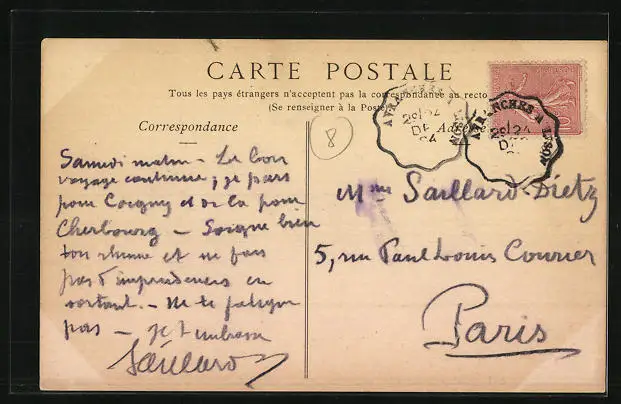 CARTE POSTALE
Tous les pays étrangers n'acceptent pas la correspondance au recto
(Se renseigner à la Poste)
Correspondance
Adresse
8
AVRANCHES A LISON
24
DEC
04
AVRANCHES A LISON
24
Samedi matin - Le bon
voyage continue; je pars
pour Coigny et de là pour
Cherbourg - Soigne bien
ton rhume et ne fais
pas d'imprudences en
sortant. - Ne te fatigue
pas - je t'embrasse
Saillard
Mme Saillard-Dietz
5, rue Paul Louis Courier
Paris